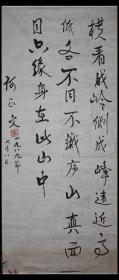 横看成岭侧成峰远近高
低各不同不识庐山真面
目只缘身在此山中
一九八九年
七月八日